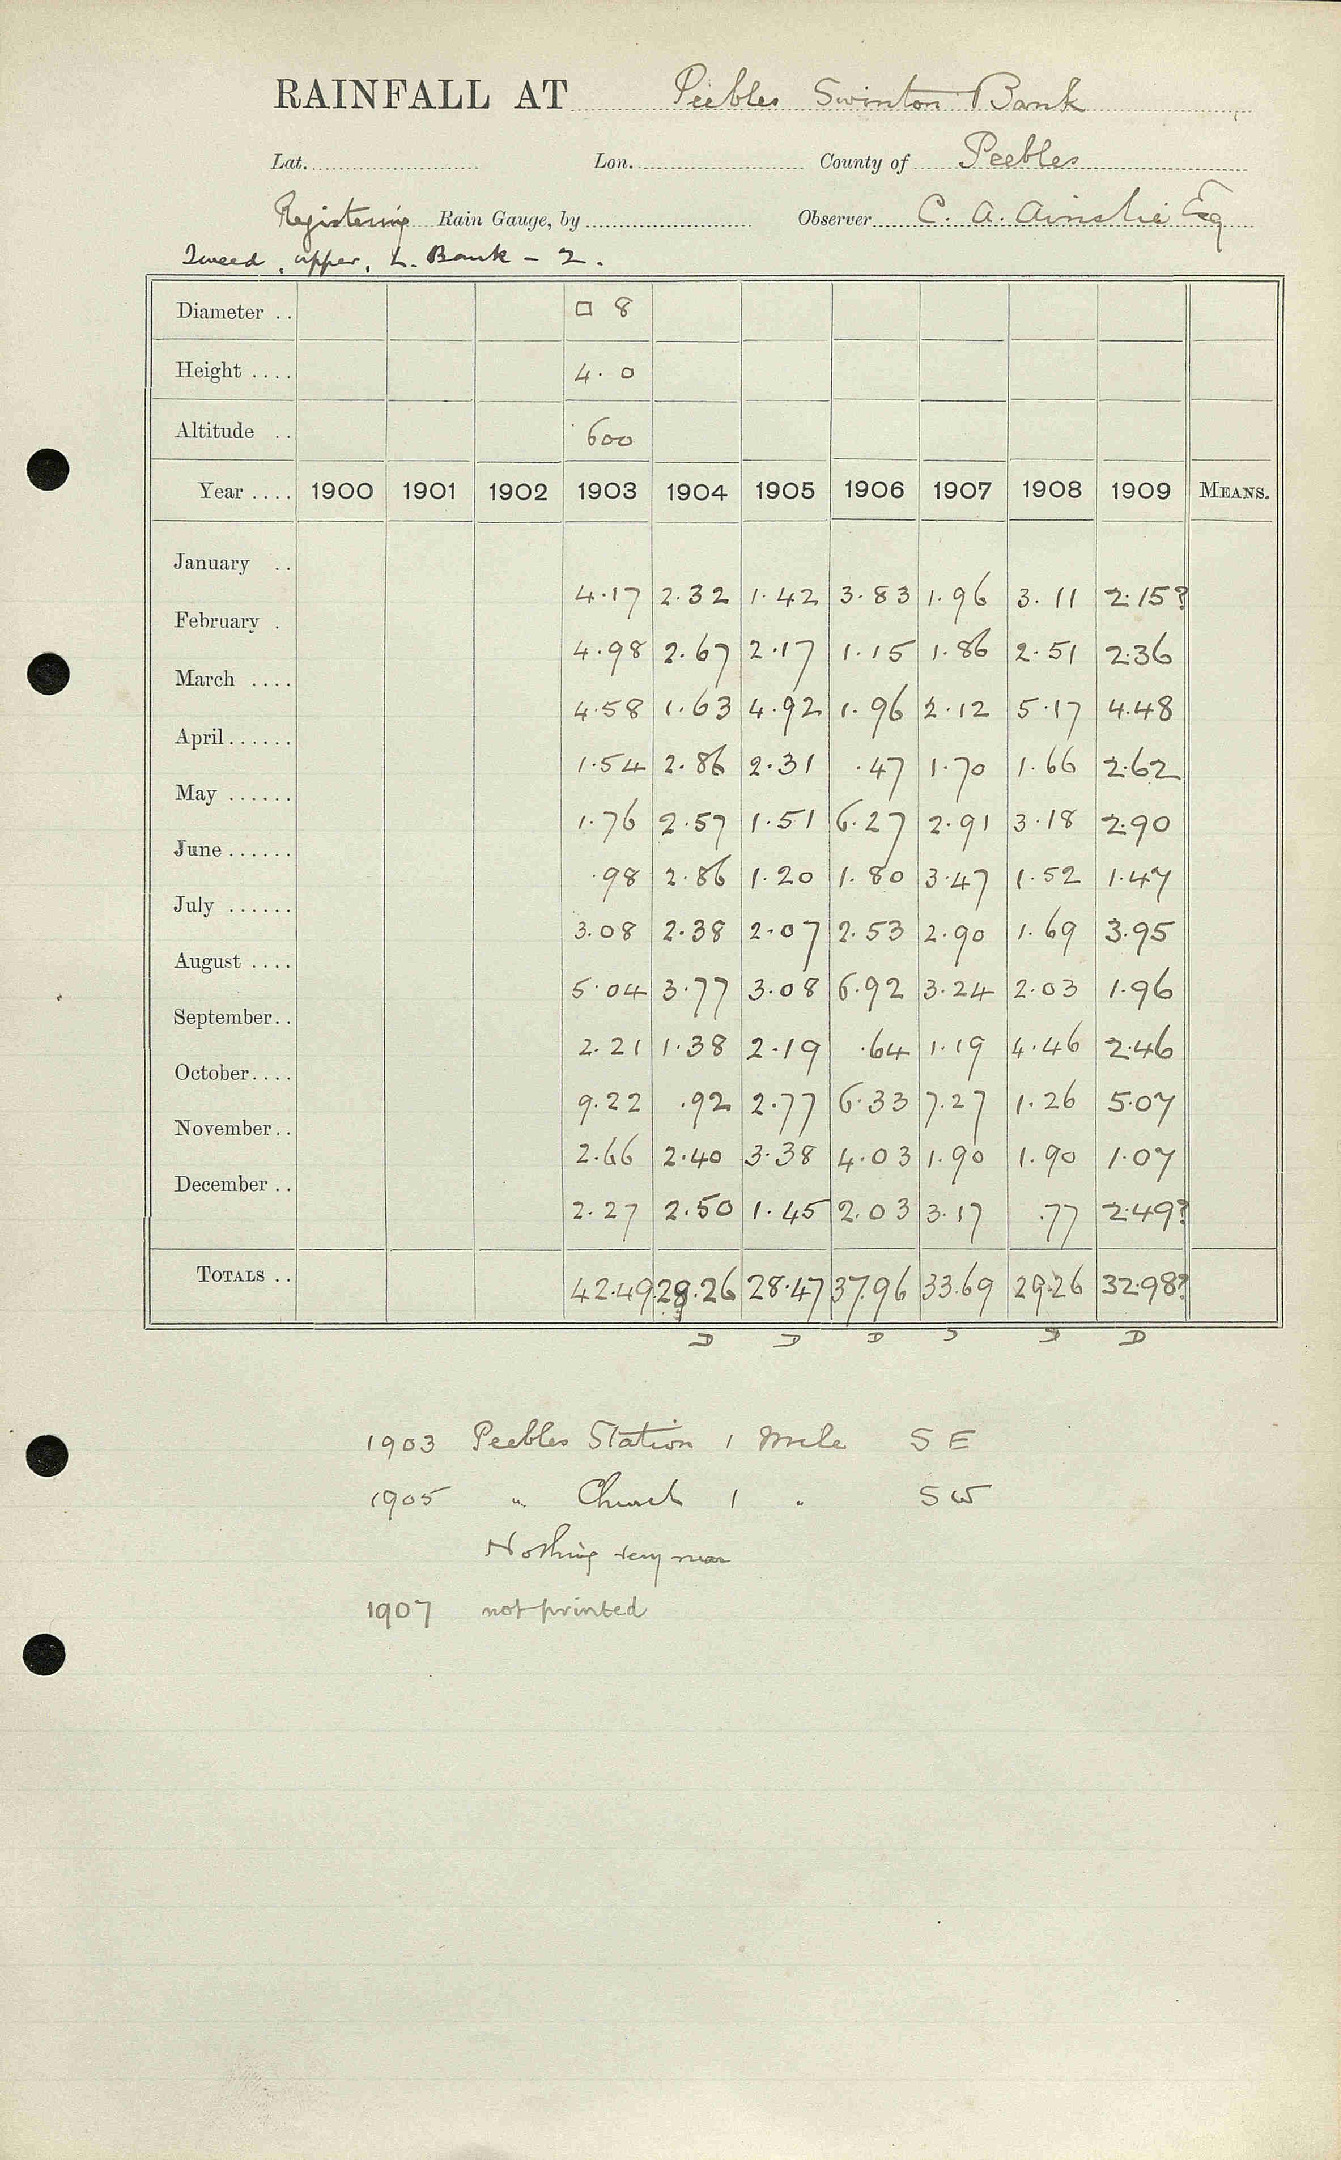 RAINFALL AT Peebles Swinton Bank
Lat. Lon. County of Peebles
Registering Rain Gauge, by Observer C. A. Ainslie Esq
Tweed, upper, L. Bank - 2.
Diameter .. □ 8
Height .... 4. 0
Altitude .. 600
Year .... 1900 1901 1902 1903 1904 1905 1906 1907 1908 1909 MEANS.
January .. 4.17 2.32 1.42 3.83 1.96 3.11 2.15?
February . 4.98 2.67 2.17 1.15 1.86 2.51 2.36
March .... 4.58 1.63 4.92 1.96 2.12 5.17 4.48
April...... 1.54 2.86 2.31 .47 1.70 1.66 2.62
May ...... 1.76 2.57 1.51 6.27 2.91 3.18 2.90
June...... .98 2.86 1.20 1.80 3.47 1.52 1.47
July ...... 3.08 2.38 2.07 2.53 2.90 1.69 3.95
August .... 5.04 3.77 3.08 6.92 3.24 2.03 1.96
September.. 2.21 1.38 2.19 .64 1.19 4.46 2.46
October.... 9.22 .92 2.77 6.33 7.27 1.26 5.07
November.. 2.66 2.40 3.38 4.03 1.90 1.90 1.07
December .. 2.27 2.50 1.45 2.03 3.17 .77 2.49?
TOTALS .. 42.49 28.26 28.47 37.96 33.69 29.26 32.98?
D D D D D
1903 Peebles Station 1 Mile S E
1905 " Church 1 " SW
Nothing very near
1907 not printed